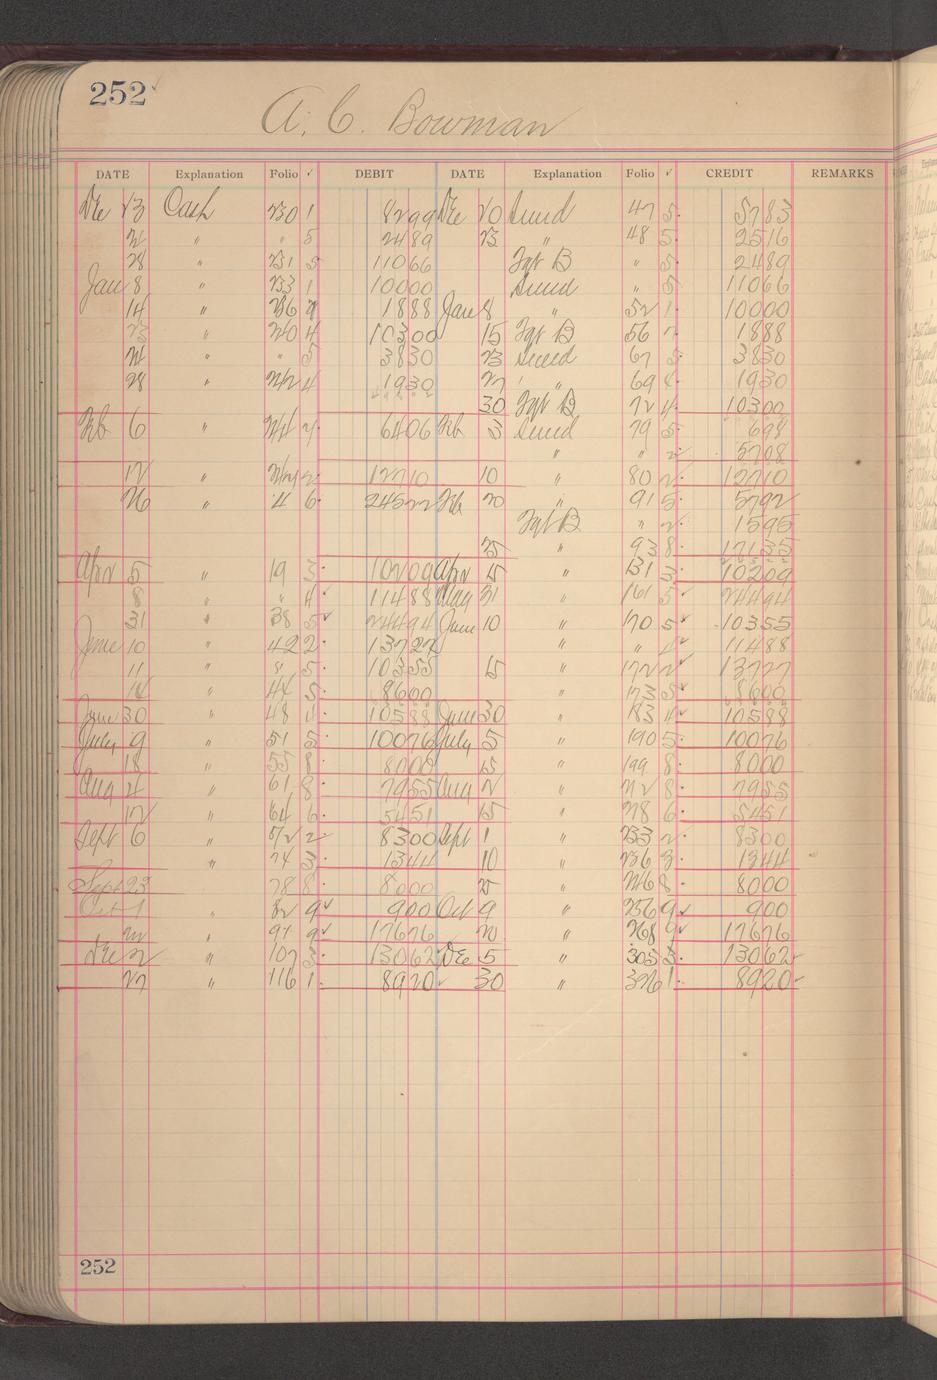 252
A. C. Bowman
DATE Explanation Folio ✓ DEBIT DATE Explanation Folio ✓ CREDIT REMARKS
Dec 23 Cash 230 1 8299 Dec 20 47 5 5783
24 " " 5 2489 23 " 48 5 2516
28 " 231 5 11066 Fgt B " 5 2489
Jan 8 " 233 1 10000 " 5 11066
14 " 236 1888 Jan 8 " 52 1 10000
23 " 240 4 10300 15 Fgt B 56 1888
24 " " 5 3830 23 67 5 3830
28 " 242 4 1930 27 " 69 4 1930
30 Fgt B 72 4 10300
Feb 6 " 244 2 6406 Feb 3 79 5 698
" " 2 5708
12 " 2 12710 10 " 80 2 12710
26 " 6 24522 Feb 20 " 91 5 5792
Fgt B " 2 1595
25 " 93 8 17135
Apr 5 " 19 3 10209 Apr 15 " 131 3 10209
8 " " 4 11488 May 31 " 161 5 24494
31 " 38 5 24494 June 10 " 170 5 10355
June 10 " 42 2 13727 " " 4 11488
11 " " 5 10355 15 " 172 2 13727
14 " 44 5 8600 " 173 5 8600
June 30 " 48 4 10588 June 30 " 183 4 10588
July 9 " 51 5 10076 July 5 " 190 5 10076
18 " 55 8 8000 15 " 199 8 8000
Aug 4 " 61 8 7955 Aug 2 " 212 8 7955
12 " 64 6 5451 15 " 218 6 5451
Sept 6 " 72 2 8300 Sept 1 " 233 2 8300
" 74 3 1344 10 " 236 3 1344
Sept 23 78 8 8000 25 " 246 8 8000
Oct 1 " 82 9 900 Oct 9 " 256 9 900
22 " 91 9 17676 20 " 268 9 17676
Dec 2 " 107 3 13062 Dec 5 " 305 3 13062
27 " 116 1 8920 30 " 326 1 8920
252